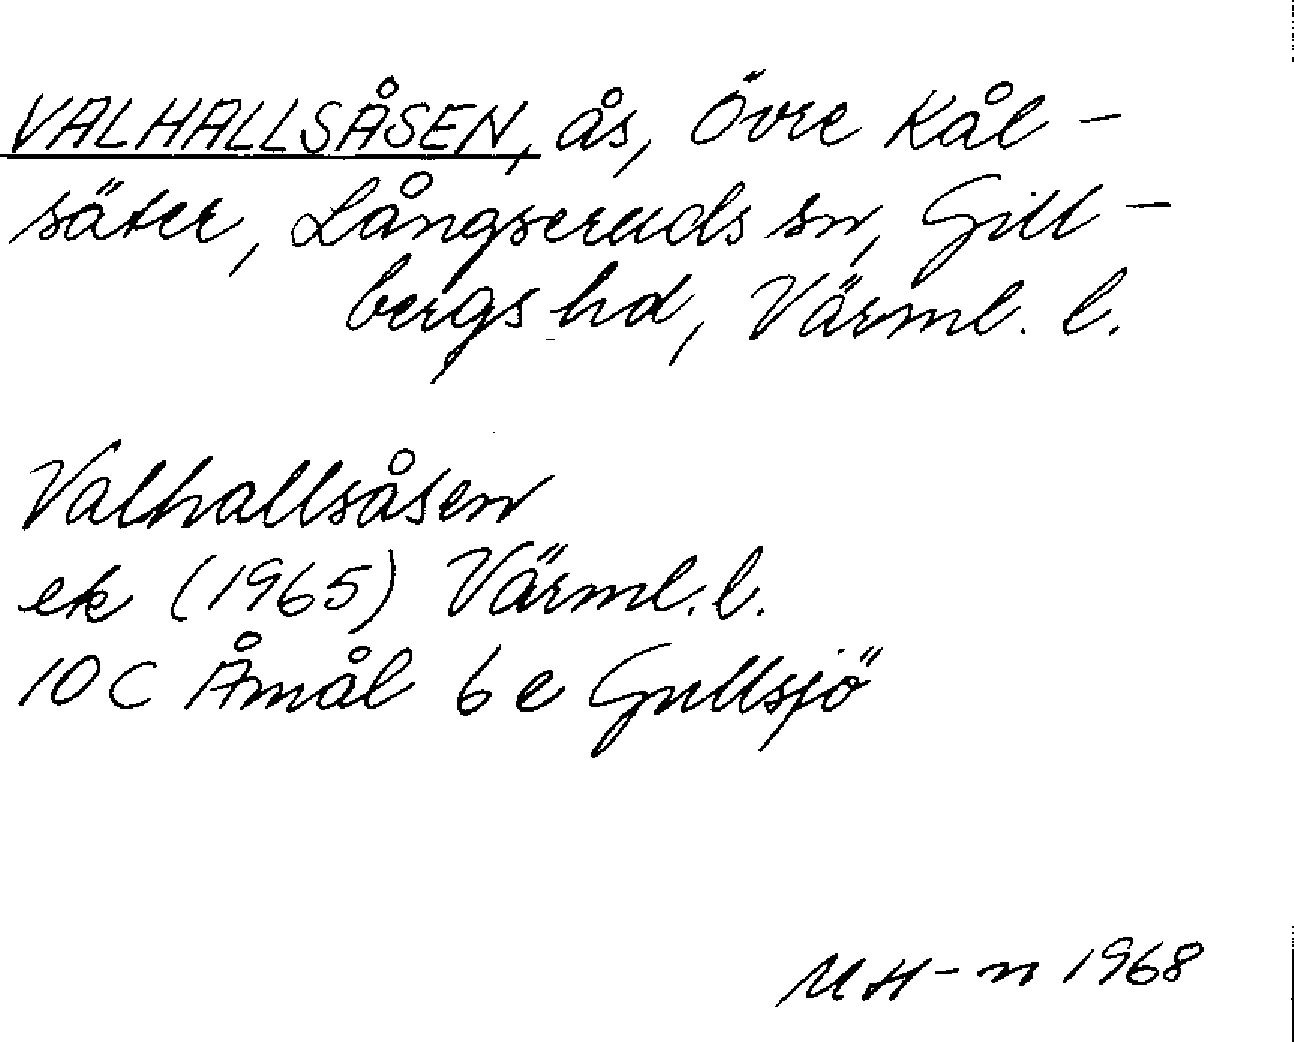 VALHALLSÅSEN, ås, Övre Kål-
säter, Långseruds sn, Gill-
bergs hd, Värml. l.
Valhallsåsen
ek (1965) Värml. l.
10 C Åmål 6 e Gullsjö
MH-n 1968